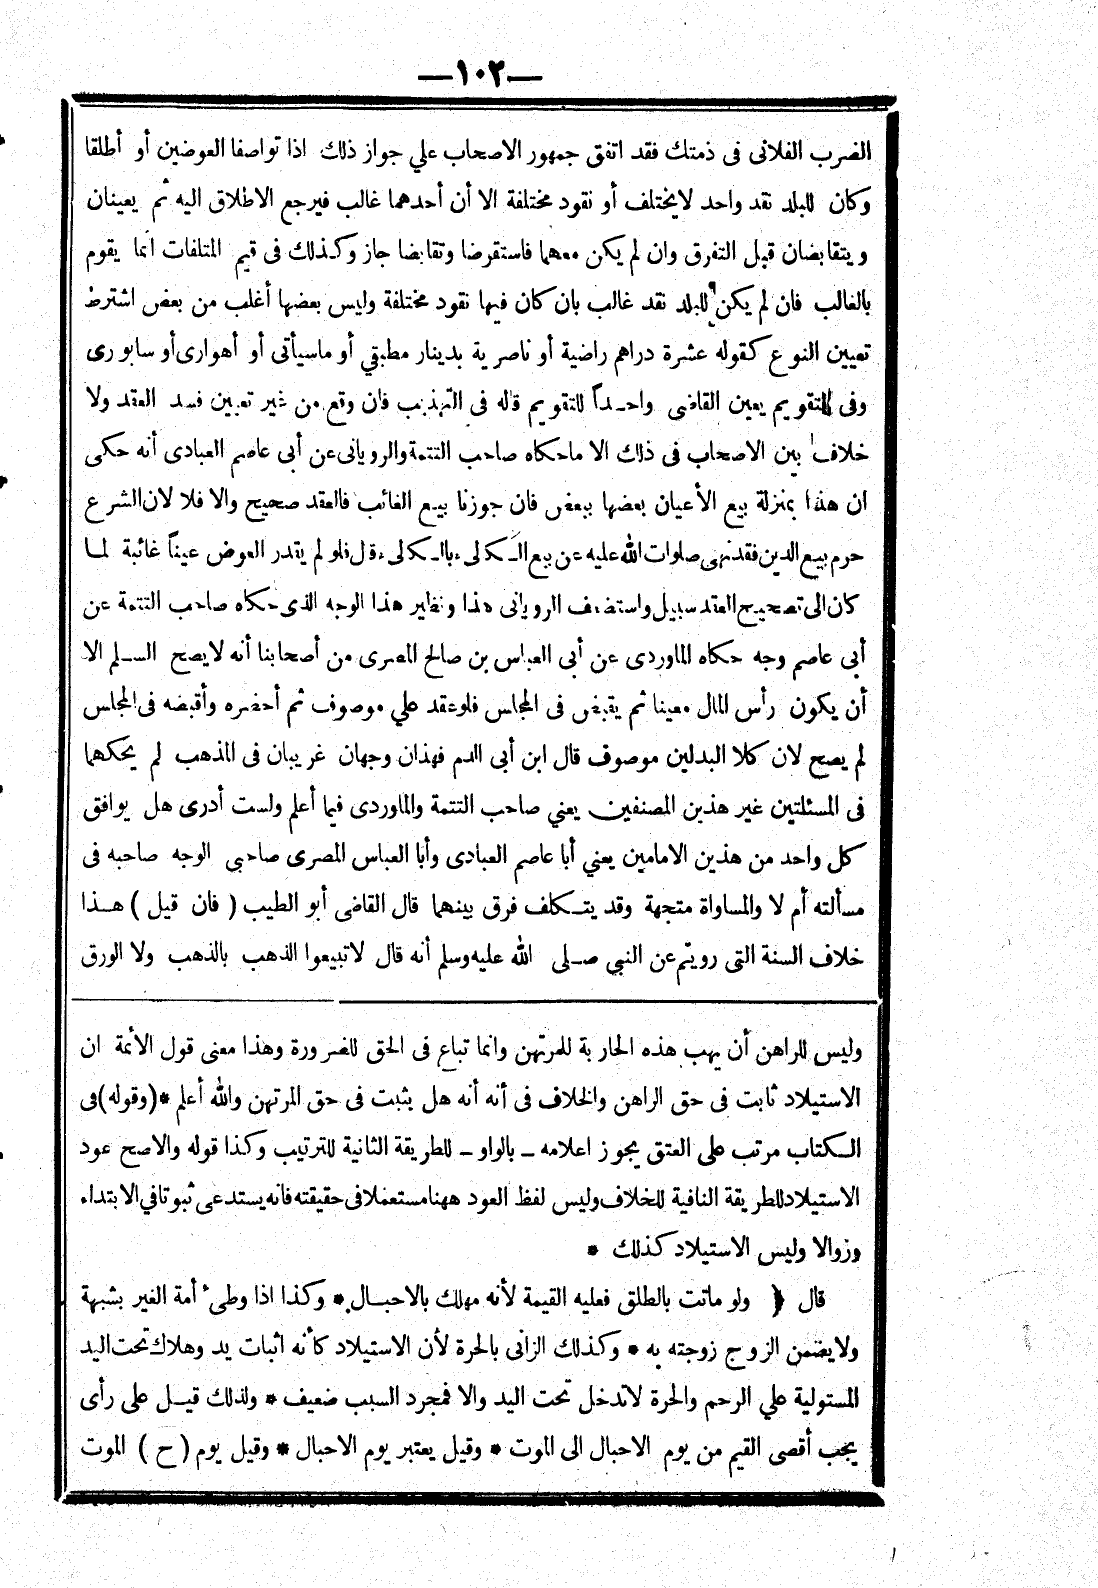 —١٠٢—
الضرب الفلانى فى ذمتك فقد اتفق جمهور الاصحاب علي جواز ذلك اذا تواصفا العوضين أو أطلقا
وكان للبلد نقد واحد لايختلف أو نقود مختلفة الا أن أحدهما غالب فيرجع الاطلاق اليه ثم يعينان
ويتقابضان قبل التفرق وان لم يكن معهما فاستقرضا وتقابضا جاز وكذلك فى قيم المتلفات انما يقوم
بالغالب فان لم يكن للبلد نقد غالب بان كان فيها نقود مختلفة وليس بعضها أغلب من بعض اشترط
تعيين النوع كقوله عشرة دراهم راضية أو ناصرية بدينار مطبقي أو ماسيأتى أو أهوارى أو سابورى
وفى التقويم يعين القاضى واحداً للتقويم قاله فى التهذيب فان وقع من غير تعيين فسد العقد ولا
خلاف بين الاصحاب فى ذلك الا ماحكاه صاحب التتمة والرويانى عن أبى عاصم العبادى أنه حكى
ان هذا بمنزلة بيع الأعيان بعضها ببعض فان جوزنا بيع الغائب فالعقد صحيح والا فلا لان الشرع
حرم بيع الدين فقد نهى صلوات الله عليه عن بيع الكالىء بالكالىء قال فلو لم يقدر العوض عيناً غائبة لما
كان الى تصحيح العقد سبيل واستضعف الرويانى هذا ونظير هذا الوجه الذى حكاه صاحب التتمة عن
أبى عاصم وجه حكاه الماوردى عن أبى العباس بن صالح المصرى من أصحابنا أنه لايصح السلم الا
أن يكون رأس المال معينا ثم يقبض فى المجلس فلو عقد علي موصوف ثم أحضره وأقبضه فى المجلس
لم يصح لان كلا البدلين موصوف قال ابن أبى الدم فهذان وجهان غريبان فى المذهب لم يحكهما
فى المسئلتين غير هذين المصنفين يعني صاحب التتمة والماوردى فيما أعلم ولست أدرى هل يوافق
كل واحد من هذين الامامين يعني أبا عاصم العبادى وأبا العباس المصرى صاحبى الوجه صاحبه فى
مسألته أم لا والمساواة متجهة وقد يتكلف فرق بينهما قال القاضى أبو الطيب ( فان قيل ) هذا
خلاف السنة التى رويتم عن النبي صلى الله عليه وسلم أنه قال لاتبيعوا الذهب بالذهب ولا الورق
وليس للراهن أن يهب هذه الجارية للمرتهن وانما تباع فى الحق للضرورة وهذا معنى قول الأئمة ان
الاستيلاد ثابت فى حق الراهن والخلاف فى أنه أنه هل يثبت فى حق المرتهن والله أعلم *(وقوله) فى
الكتاب مرتب على العتق يجوز اعلامه ـ بالواو ـ للطريقة الثانية للترتيب وكذا قوله والاصح عود
الاستيلاد للطريقة النافية للخلاف وليس لفظ العود ههنا مستعملا فى حقيقته فانه يستدعى ثبوتا في الابتداء
وزوالا وليس الاستيلاد كذلك *
قال ﴿ ولو ماتت بالطلق فعليه القيمة لأنه مهلك بالاحبال * وكذا اذا وطىء أمة الغير بشبهة
ولايضمن الزوج زوجته به * وكذلك الزانى بالحرة لأن الاستيلاد كأنه اثبات يد وهلاك تحت اليد
المستولية علي الرحم والحرة لاتدخل تحت اليد والا فمجرد السبب ضعيف * ولذلك قيل على رأى
يجب أقصى القيم من يوم الاحبال الى الموت * وقيل يعتبر يوم الاحبال * وقيل يوم ( ح ) الموت